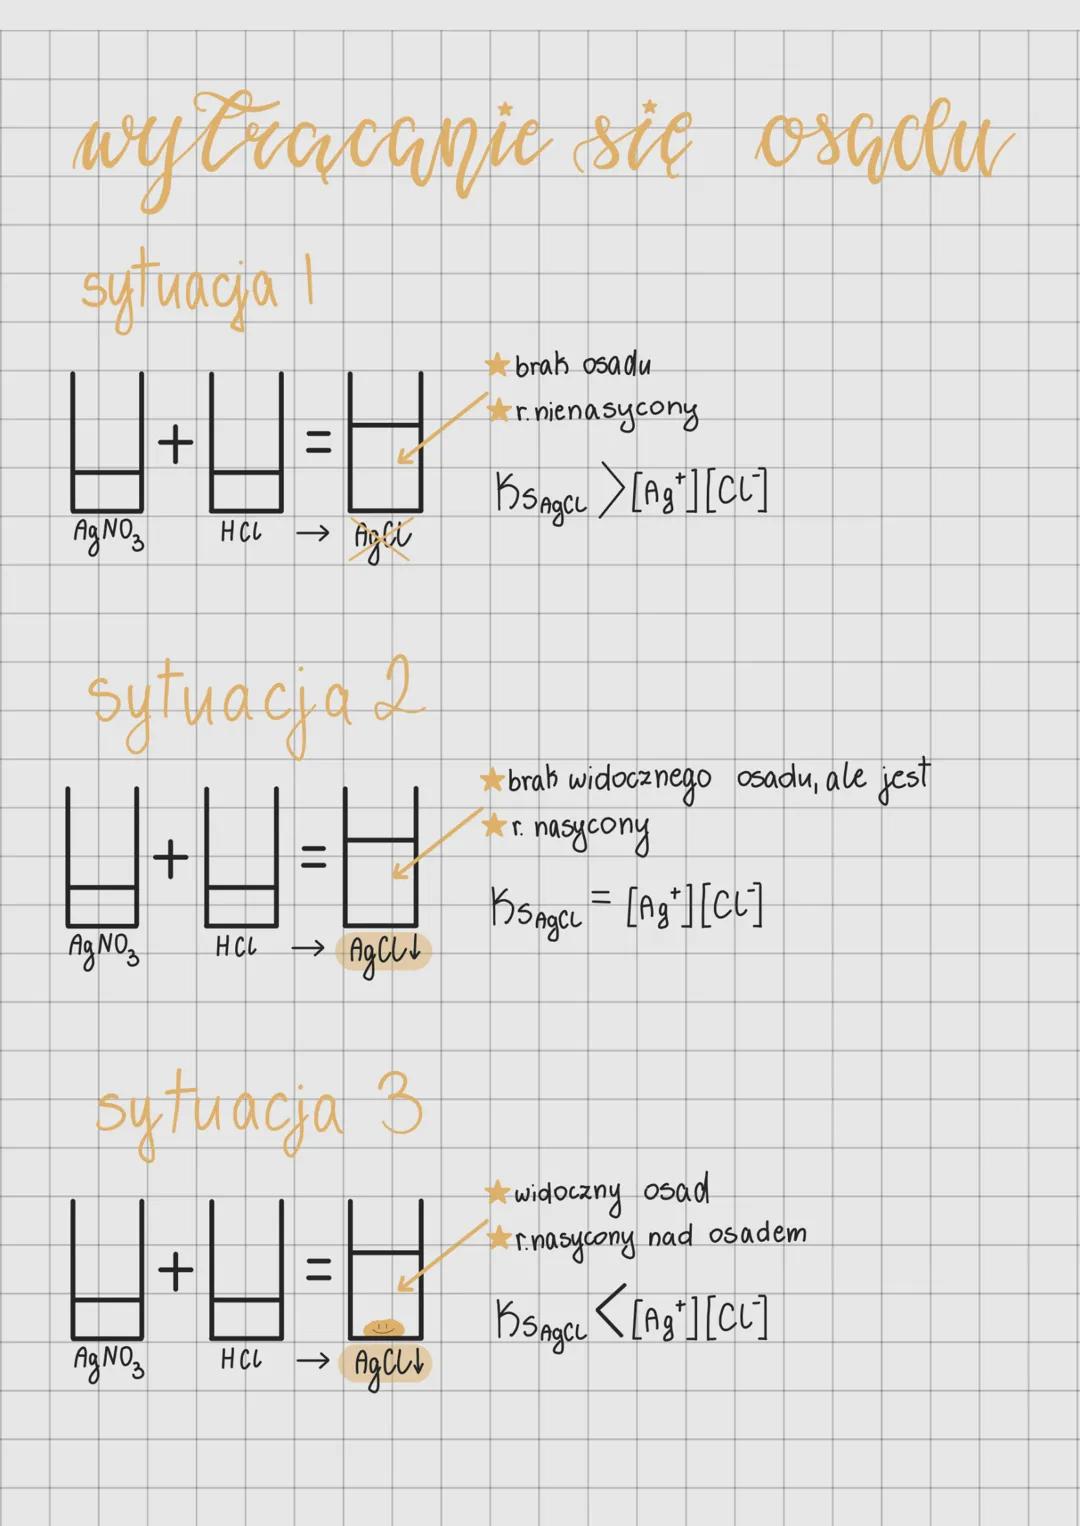 wytrącanie się osadu
sytuacja 1
brak osadu
r. nienasycony
+ =
Ks AgCl > [Ag⁺][Cl⁻]
AgNO₃ HCl → AgCl
sytuacja 2
brak widocznego osadu, ale jest
r. nasycony
+ =
Ks AgCl = [Ag⁺][Cl⁻]
AgNO₃ HCl → AgCl↓
sytuacja 3
widoczny osad
r. nasycony nad osadem
+ =
Ks AgCl < [Ag⁺][Cl⁻]
AgNO₃ HCl → AgCl↓